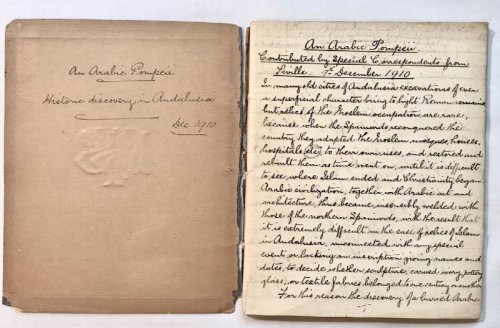 An Arabic Pompeii
Historic discovery in Andalusia
Dec 1910
An Arabic Pompeii.
Contributed by Special Correspondents from
Seville 9th December 1910
In many old cities of Andalusia excavations of even
a superficial character bring to light Roman remains
but relics of the Moslem occupation are rare,
because when the Spaniards reconquered the
country they adapted the Moslem mosques, houses,
hospitals, etc, to their own uses, and restored and
rebuilt them as time went on, until it is difficult
to see where Islam ended and Christianity began
Arabic civilization, together with Arabic art and
architecture, thus became insensibly welded with
those of the northern Spaniards, with the result that
it is extremely difficult in the case of relics of Islam
in Andalusia, unconnected with any special
event or lacking an inscription giving names and
dates, to decide whether sculpture, carved ivory, pottery
glass, or textile fabrics belonged to one century or another
For this reason the discovery of a buried Arabic